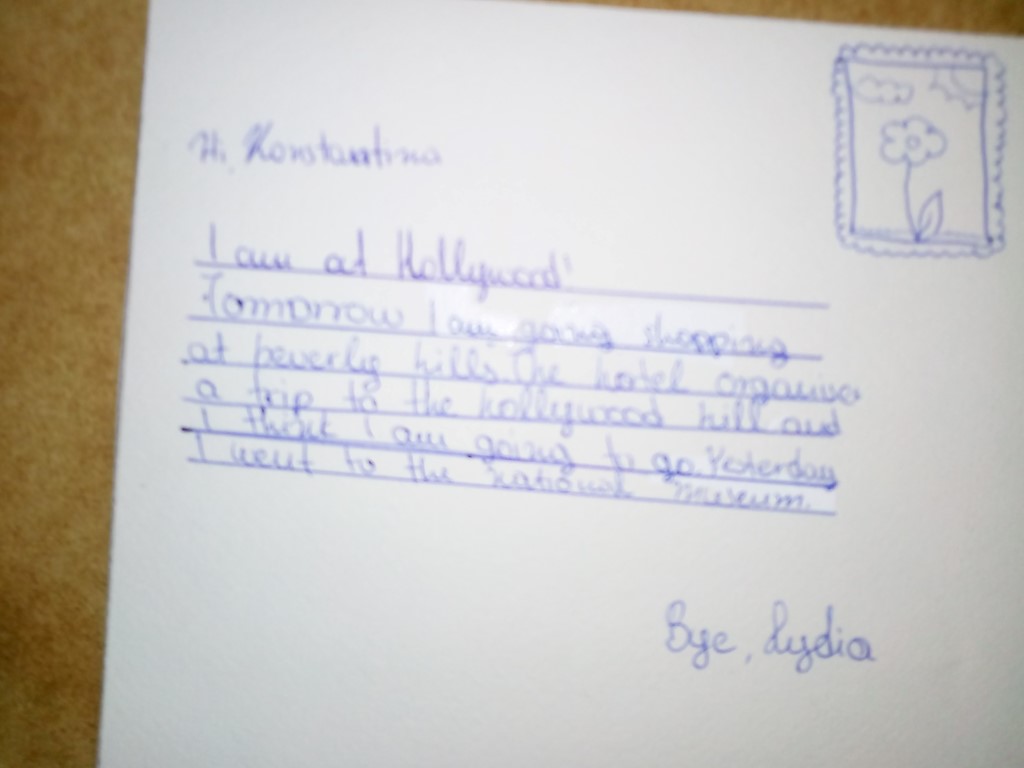 Hi, Konstantina
I am at Hollywood
Tomorrow I am going shopping
at beverly hills. The hotel organises
a trip to the hollywood hill and
I think I am going to go. Yesterday
I went to the national museum.
Bye, Lydia